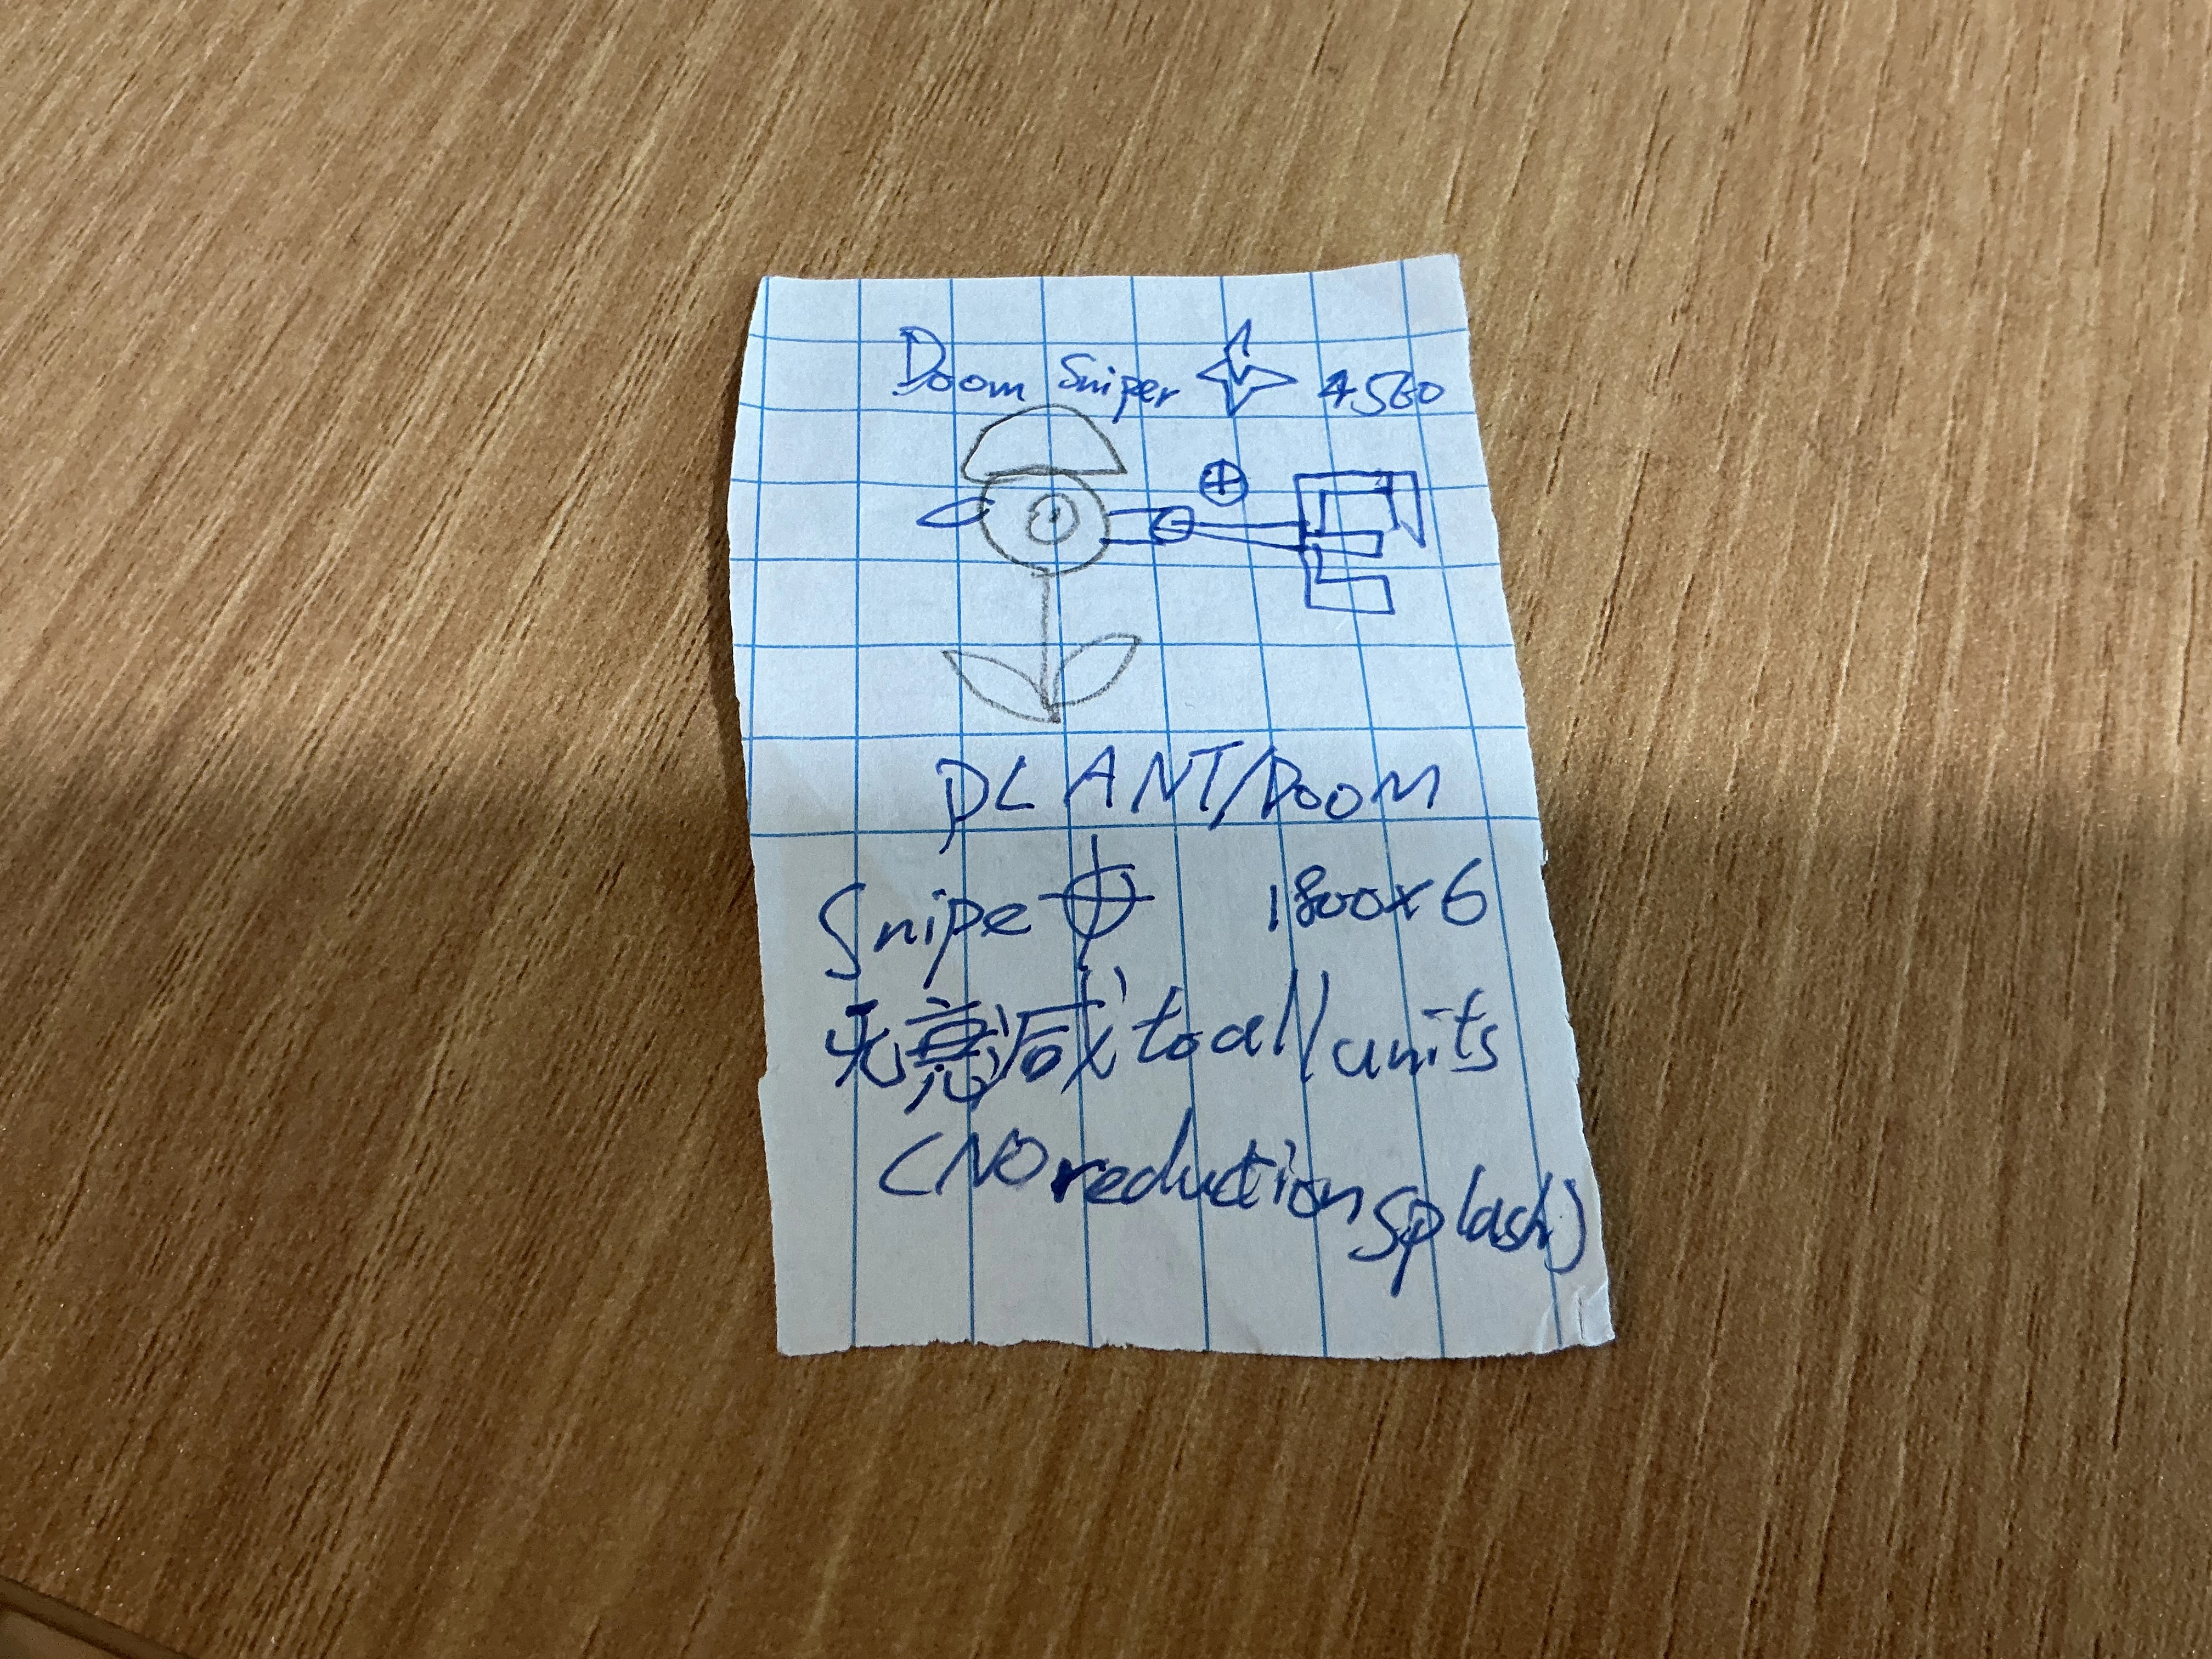 Doom Sniper 4560
PLANT/DOOM
Snipe 1800x6
无衰减 to all units
(NO reduction splash)